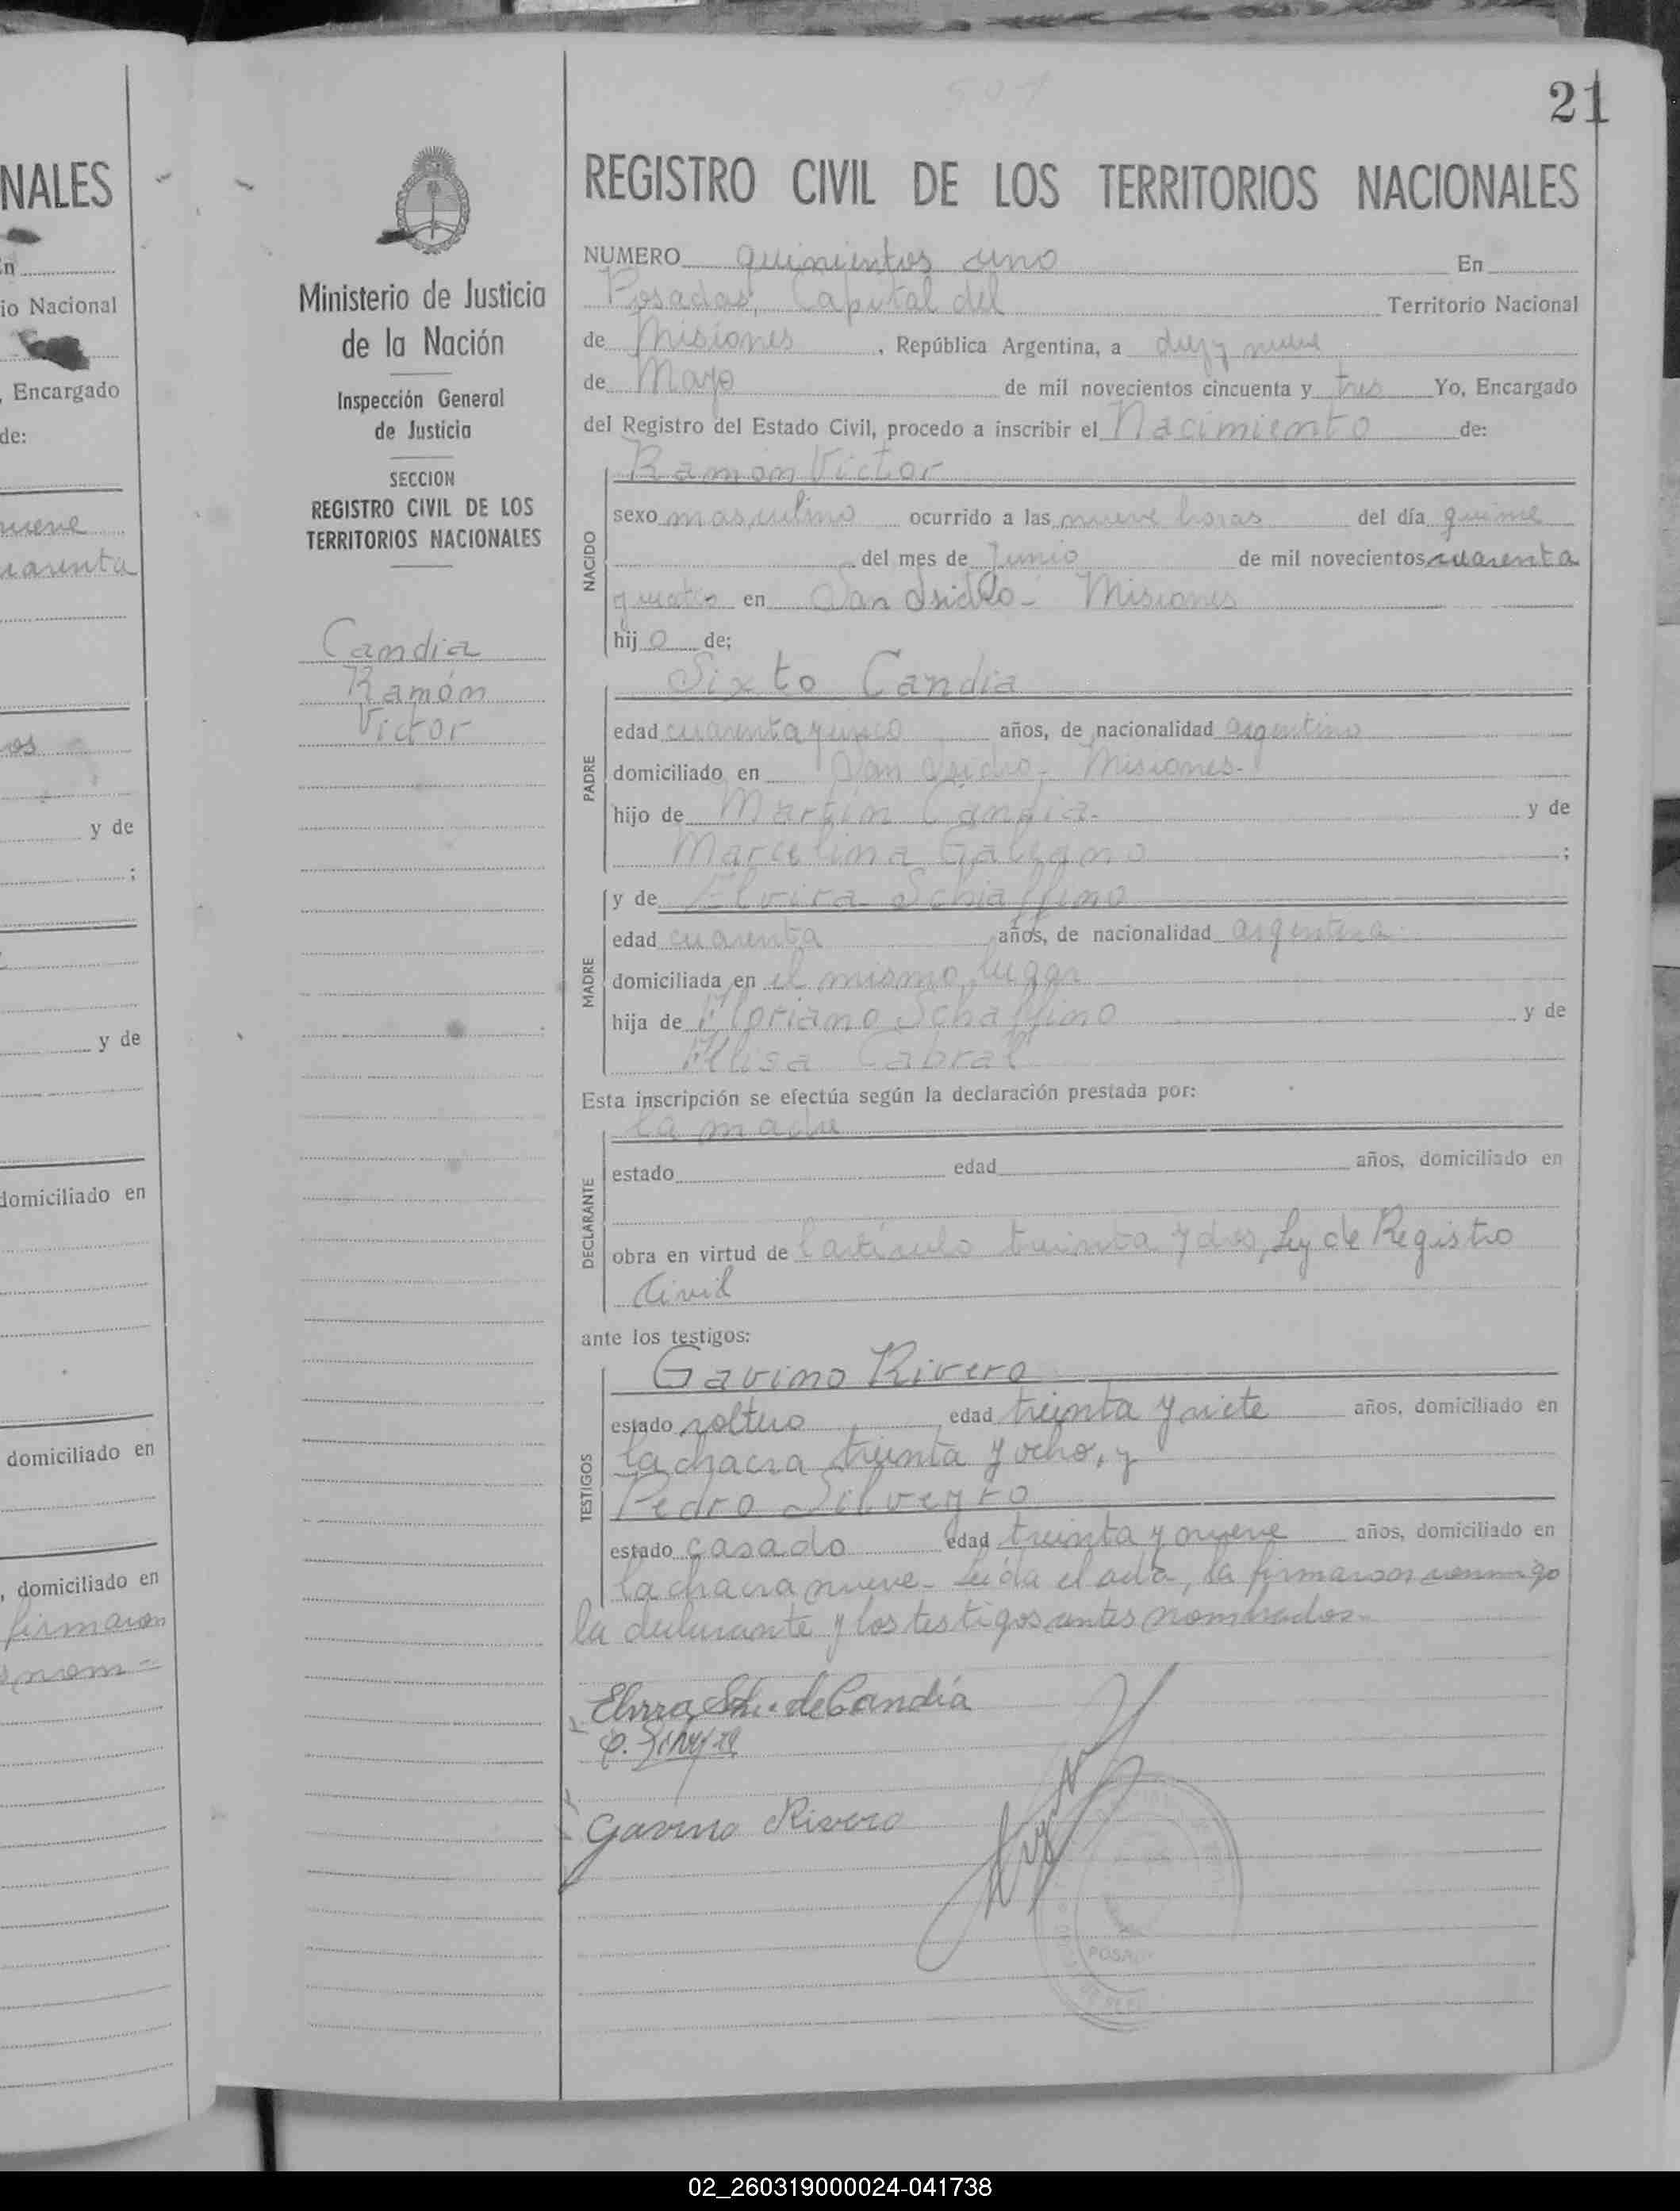 NALES
En
io Nacional
, Encargado
de:
nueve
cuarenta
y de
;
y de
domiciliado en
domiciliado en
, domiciliado en
firmaron
nom=
Ministerio de Justicia
de la Nación
Inspección General
de Justicia
SECCION
REGISTRO CIVIL DE LOS
TERRITORIOS NACIONALES
Candia
Ramón
Victor
501
21
REGISTRO CIVIL DE LOS TERRITORIOS NACIONALES
NUMERO quinientos uno En
Posadas, Capital del Territorio Nacional
de Misiones, República Argentina, a diez y nueve
de Mayo de mil novecientos cincuenta y tres Yo, Encargado
del Registro del Estado Civil, procedo a inscribir el Nacimiento de:
Ramón Victor
NACIDO
sexo masculino ocurrido a las nueve horas del día quince
del mes de Junio de mil novecientos cuarenta
y cuatro en San Isidro - Misiones
hijo de;
Sixto Candia
PADRE
edad cuarenta y cinco años, de nacionalidad argentino
domiciliado en San Isidro - Misiones-
hijo de Martin Candia- y de
Marcelina Galeano ;
y de Elvira Schiaffino
MADRE
edad cuarenta años, de nacionalidad argentina
domiciliada en el mismo lugar
hija de Floriano Schaffino y de
Elisa Cabral
Esta inscripción se efectúa según la declaración prestada por:
la madre
DECLARANTE
estado edad años, domiciliado en
obra en virtud de l artículo treinta y dos, Ley de Registro
Civil
ante los testigos:
Gavino Rivero
TESTIGOS
estado soltero edad treinta y siete años, domiciliado en
la chacra treinta y ocho, y
Pedro Silveyro
estado casado edad treinta y nueve años, domiciliado en
la chacra nueve- Leída el acta, la firmaron conmigo
la declarante y los testigos antes nombrados-
Elvira Sch. de Candia
Gavino Rivero
POSA
02_260319000024-041738